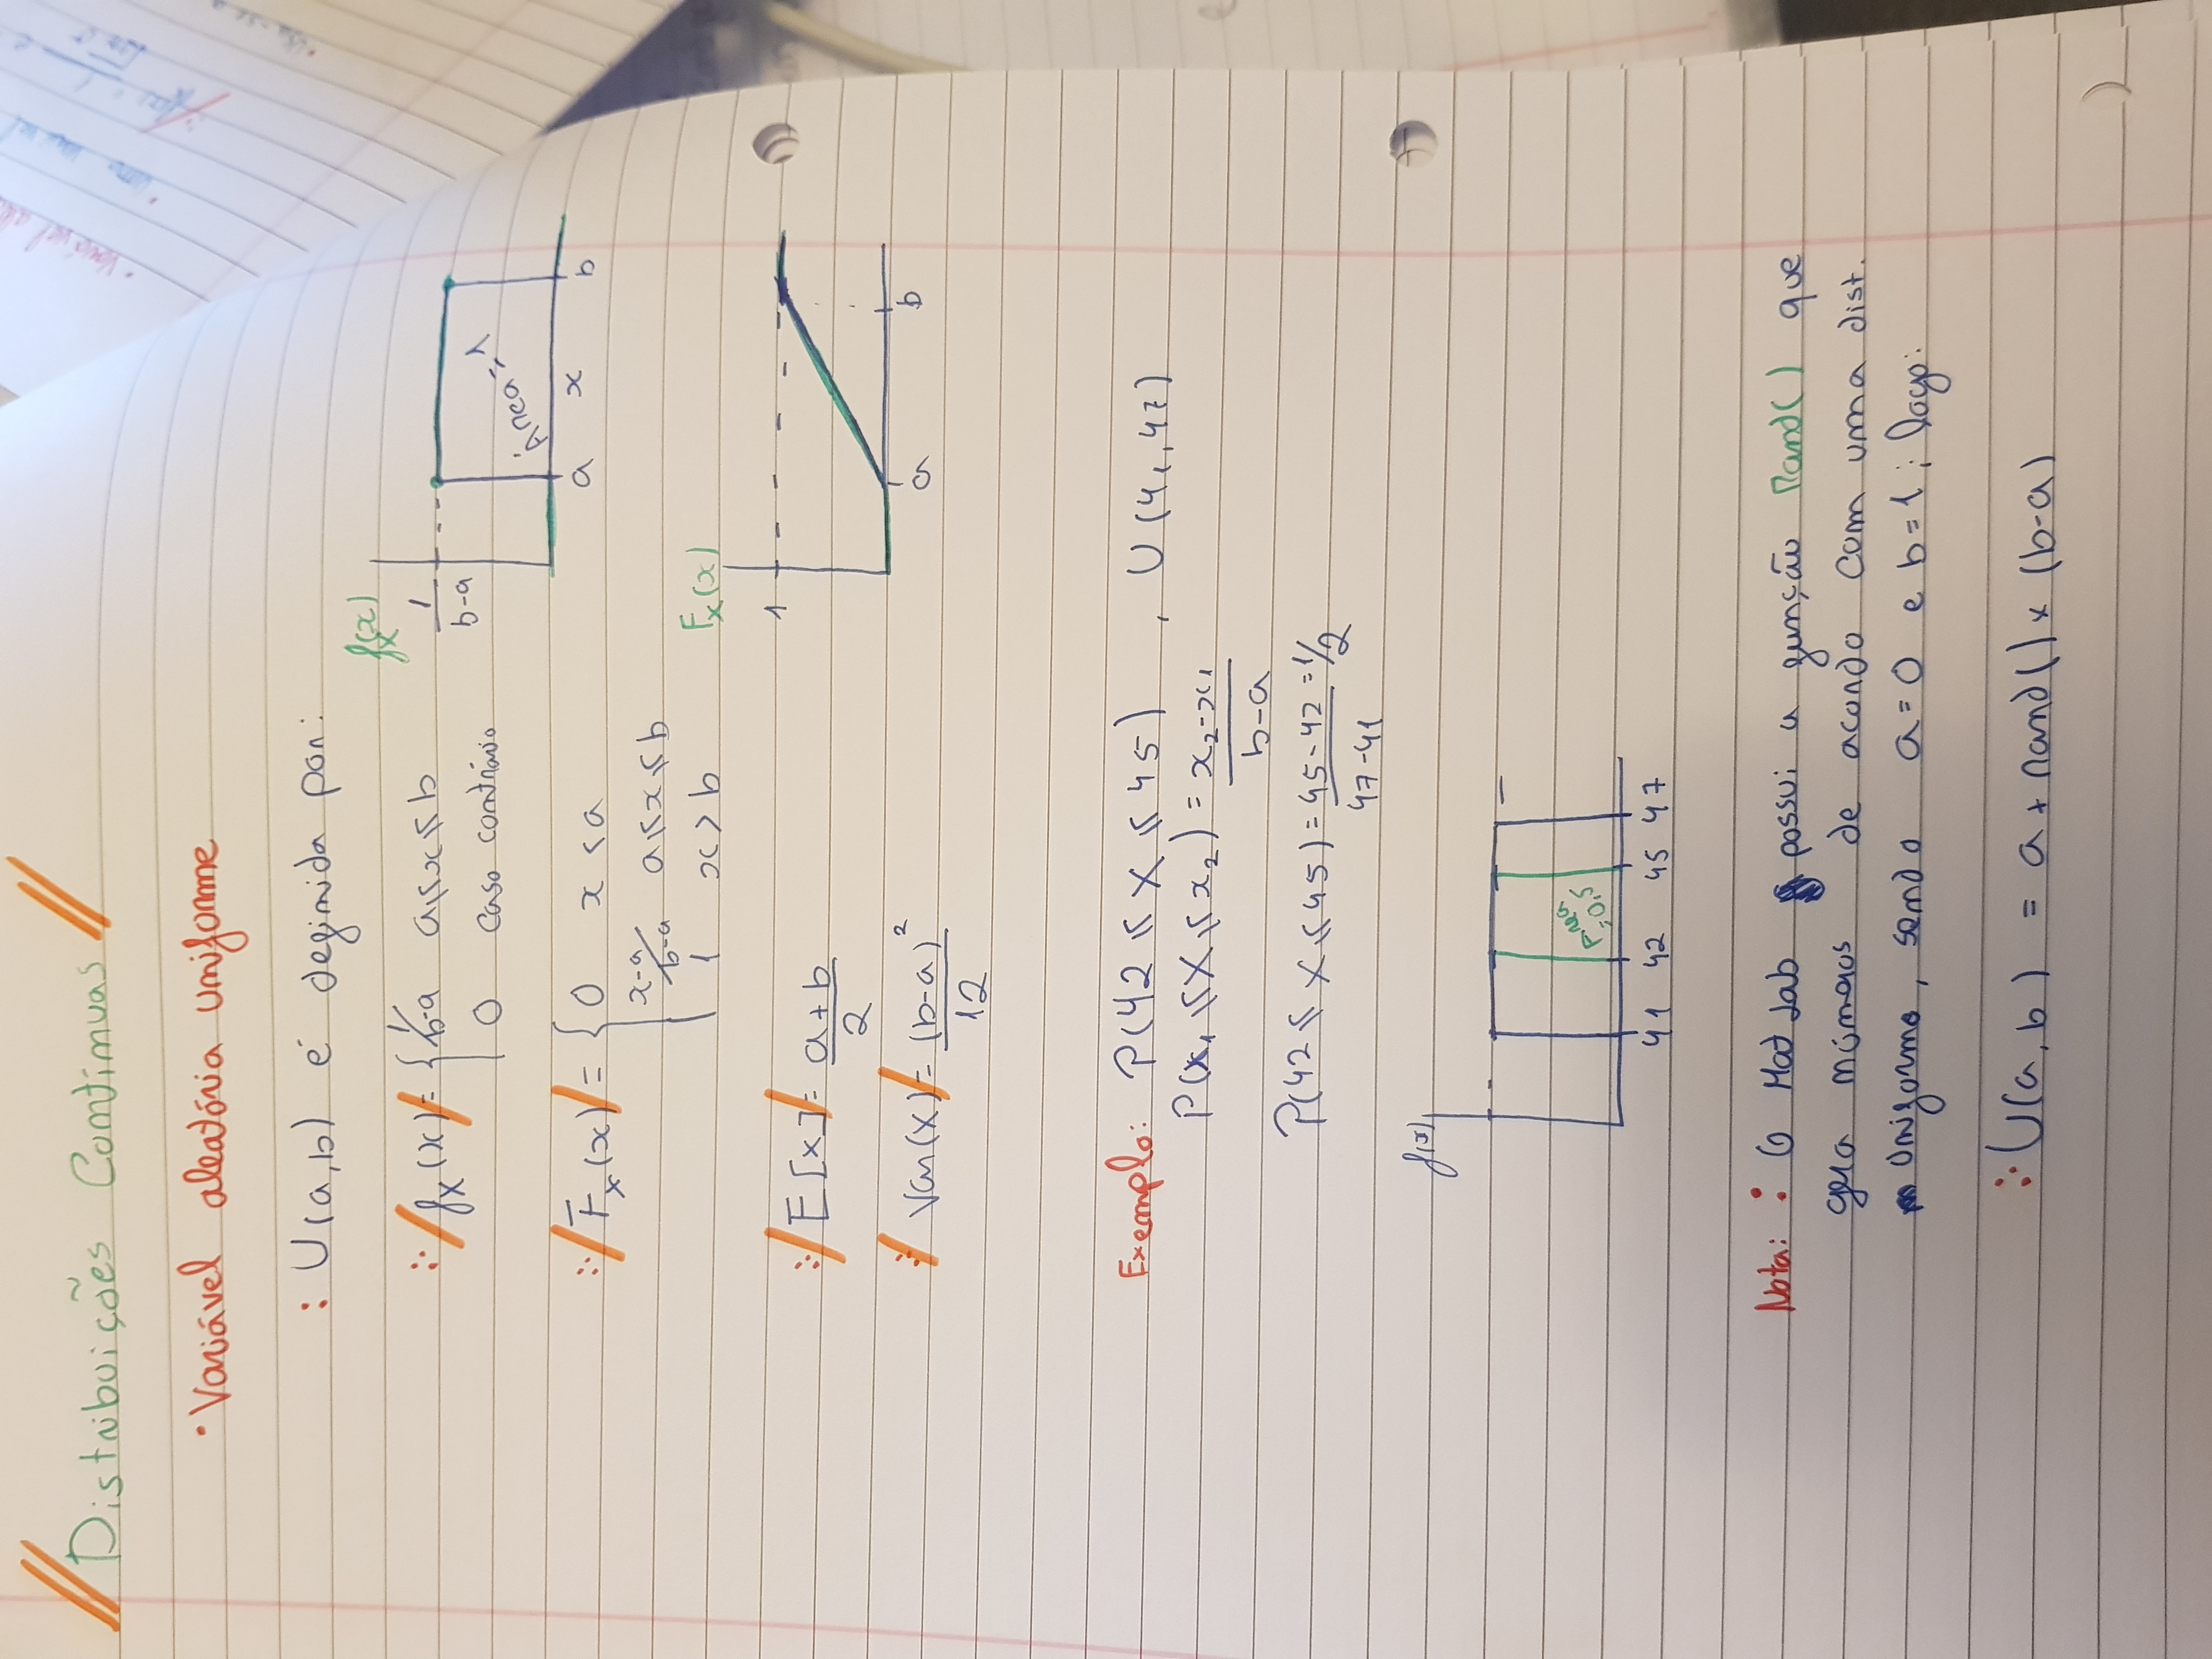 Distribuições Contínuas
• Variável aleatória uniforme
: U(a,b) é definida por:
fx(x) = { 1/b-a a ≤ x ≤ b
0 caso contrário
fx(x)
1/b-a
Área = 1
a x b
Fx(x) = { 0 x < a
x-a/b-a a ≤ x ≤ b
1 x > b
Fx(x)
1
a b
E[x] = a+b/2
Var(X) = (b-a)²/12
Exemplo: P(42 ≤ X ≤ 45) , U(41,47)
P(x₁ ≤ X ≤ x₂) = x₂-x₁/b-a
P(42 ≤ X ≤ 45) = 45-42/47-41 = 1/2
f(x)
Área
=0,5
41 42 45 47
Nota: : O MatLab possui a função Rand() que
gera números de acordo com uma dist.
Uniforme, sendo a=0 e b=1; logo:
∴ U(a,b) = a + rand() × (b-a)